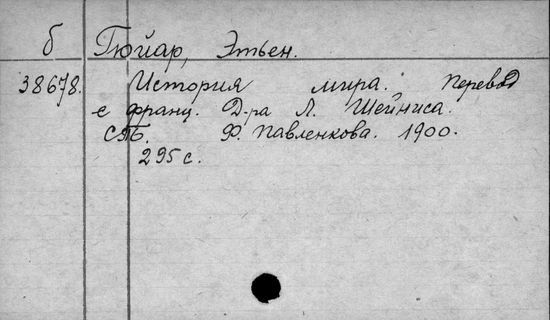 б Гюйар, Этьен.
38678. История мира. Перевод
с франц. Д-ра Л. Шейниса.
СПБ. Ф. Павленкова. 1900.
295 с.